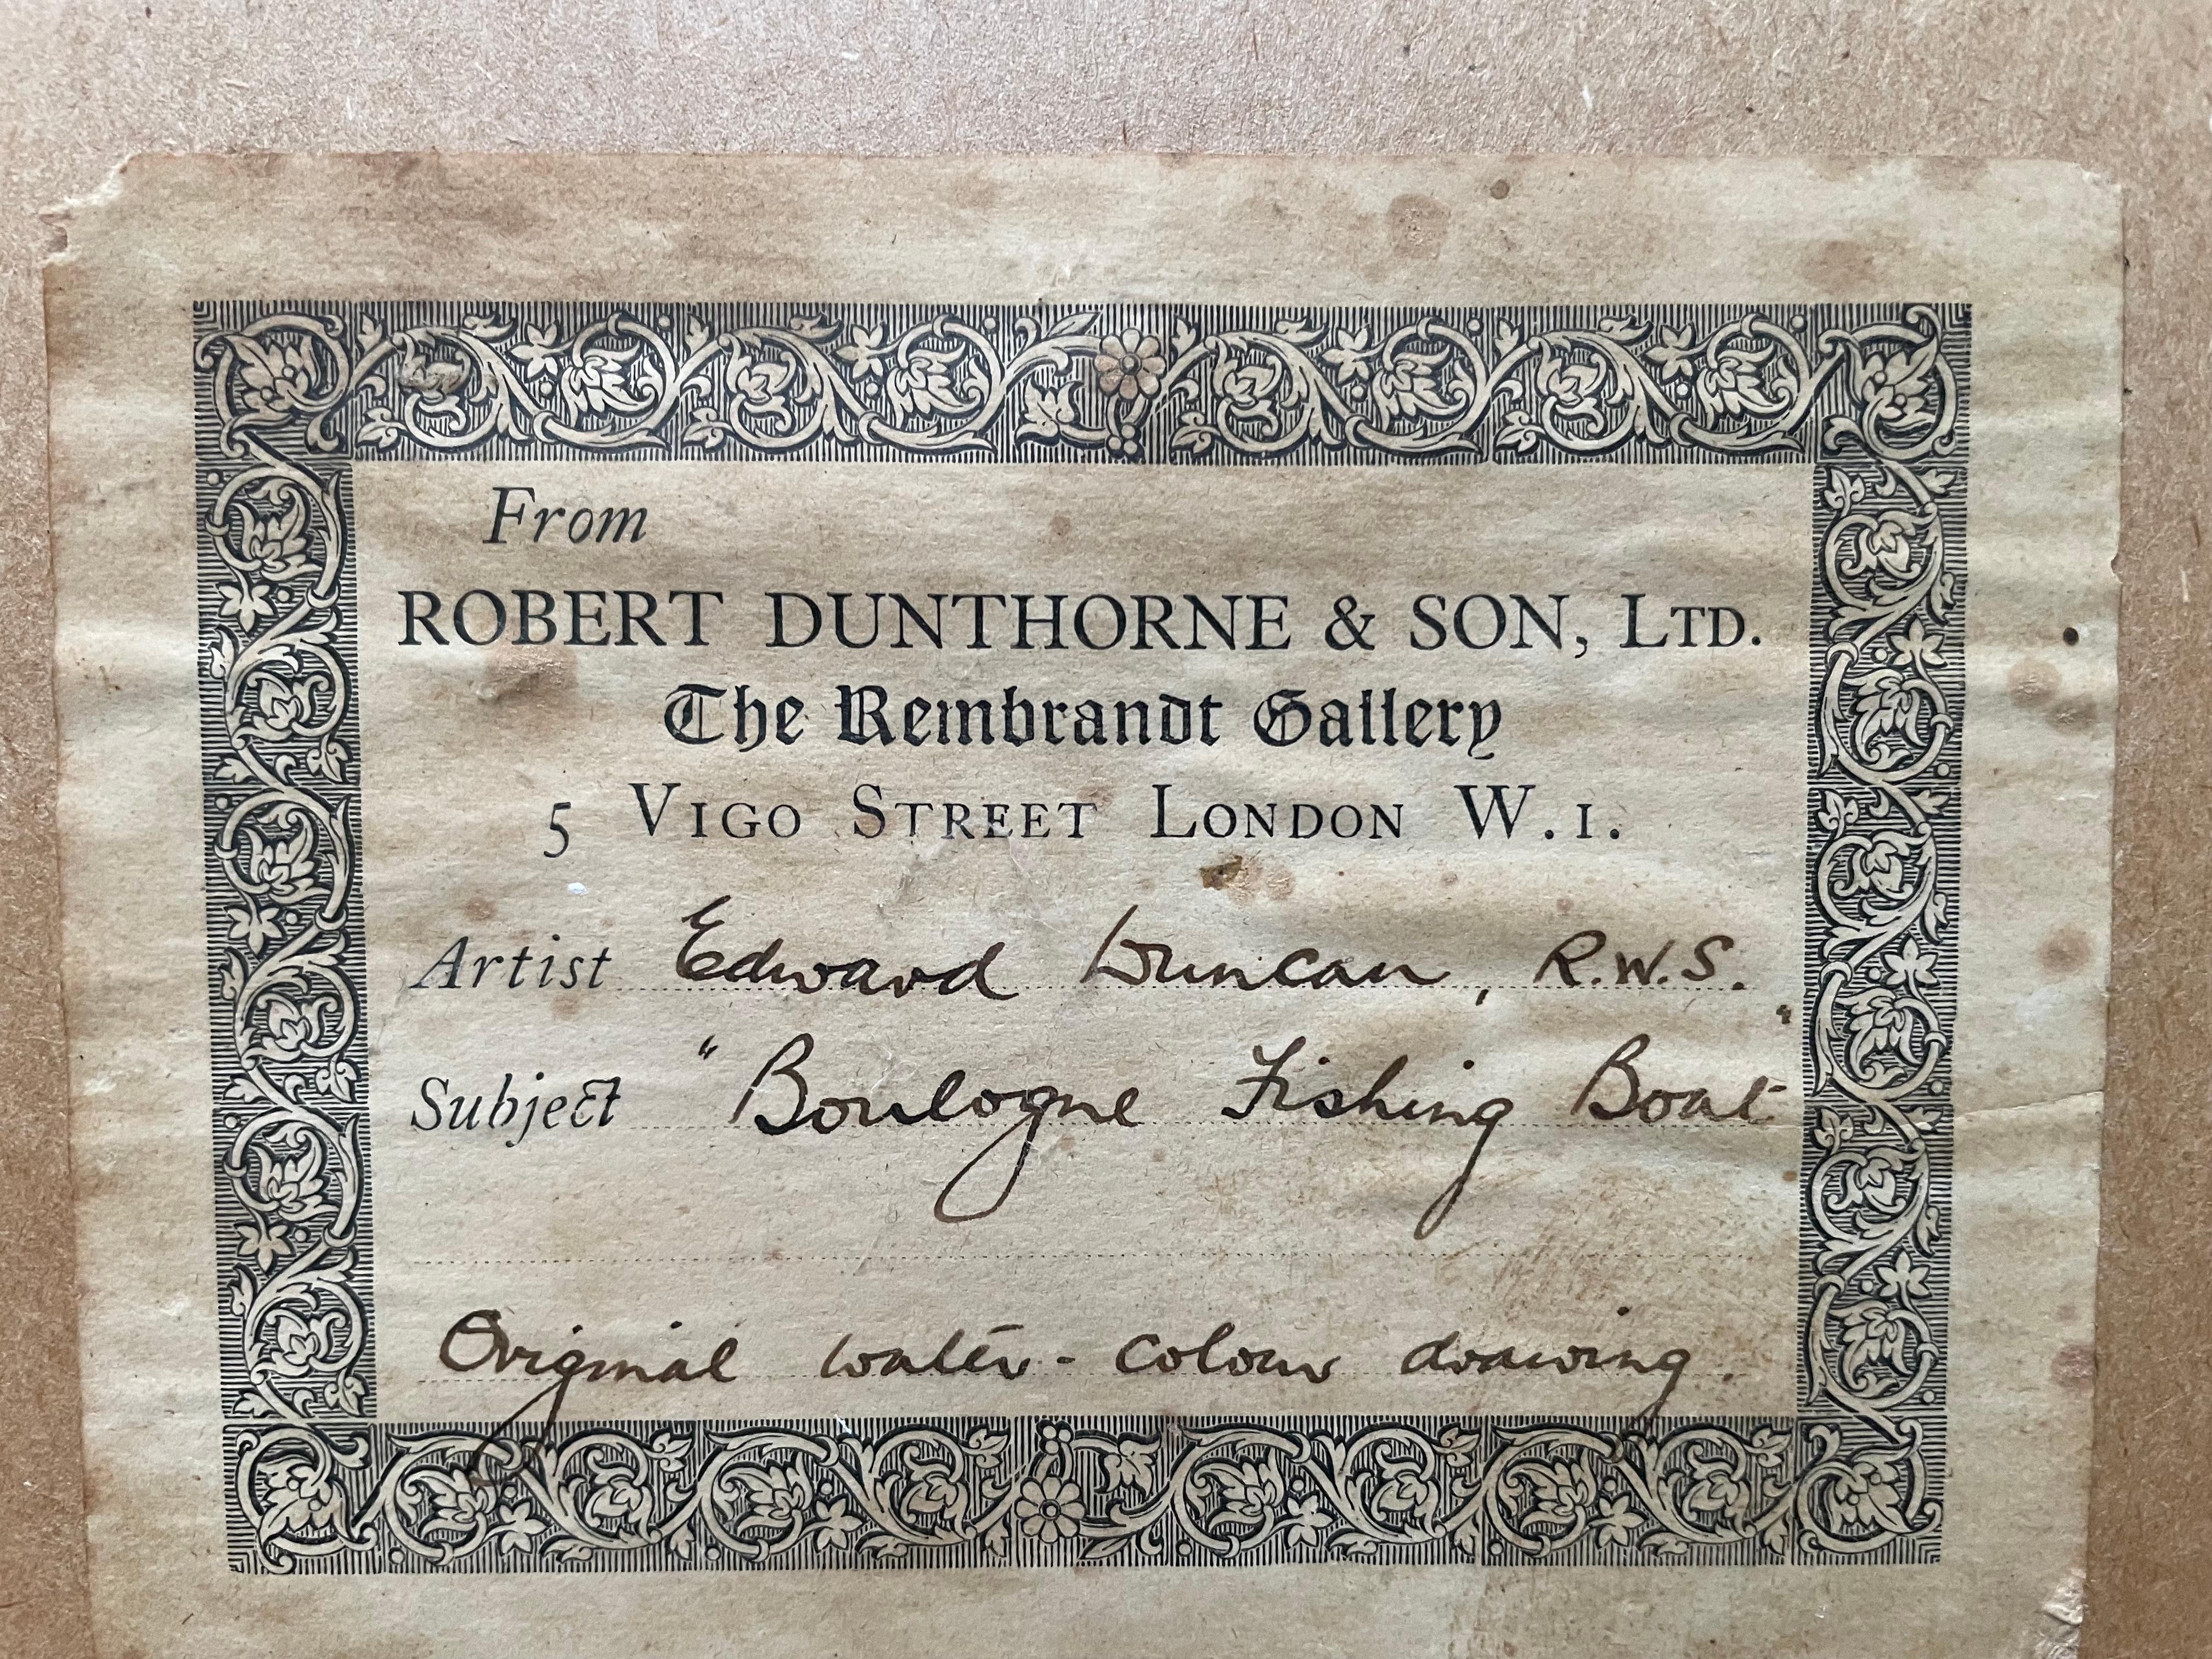 From
ROBERT DUNTHORNE & SON, LTD.
The Rembrandt Gallery
5 VIGO STREET LONDON W.1.
Artist Edward Duncan, R.W.S.
Subject "Boulogne Fishing Boat"
Original water-colour drawing.